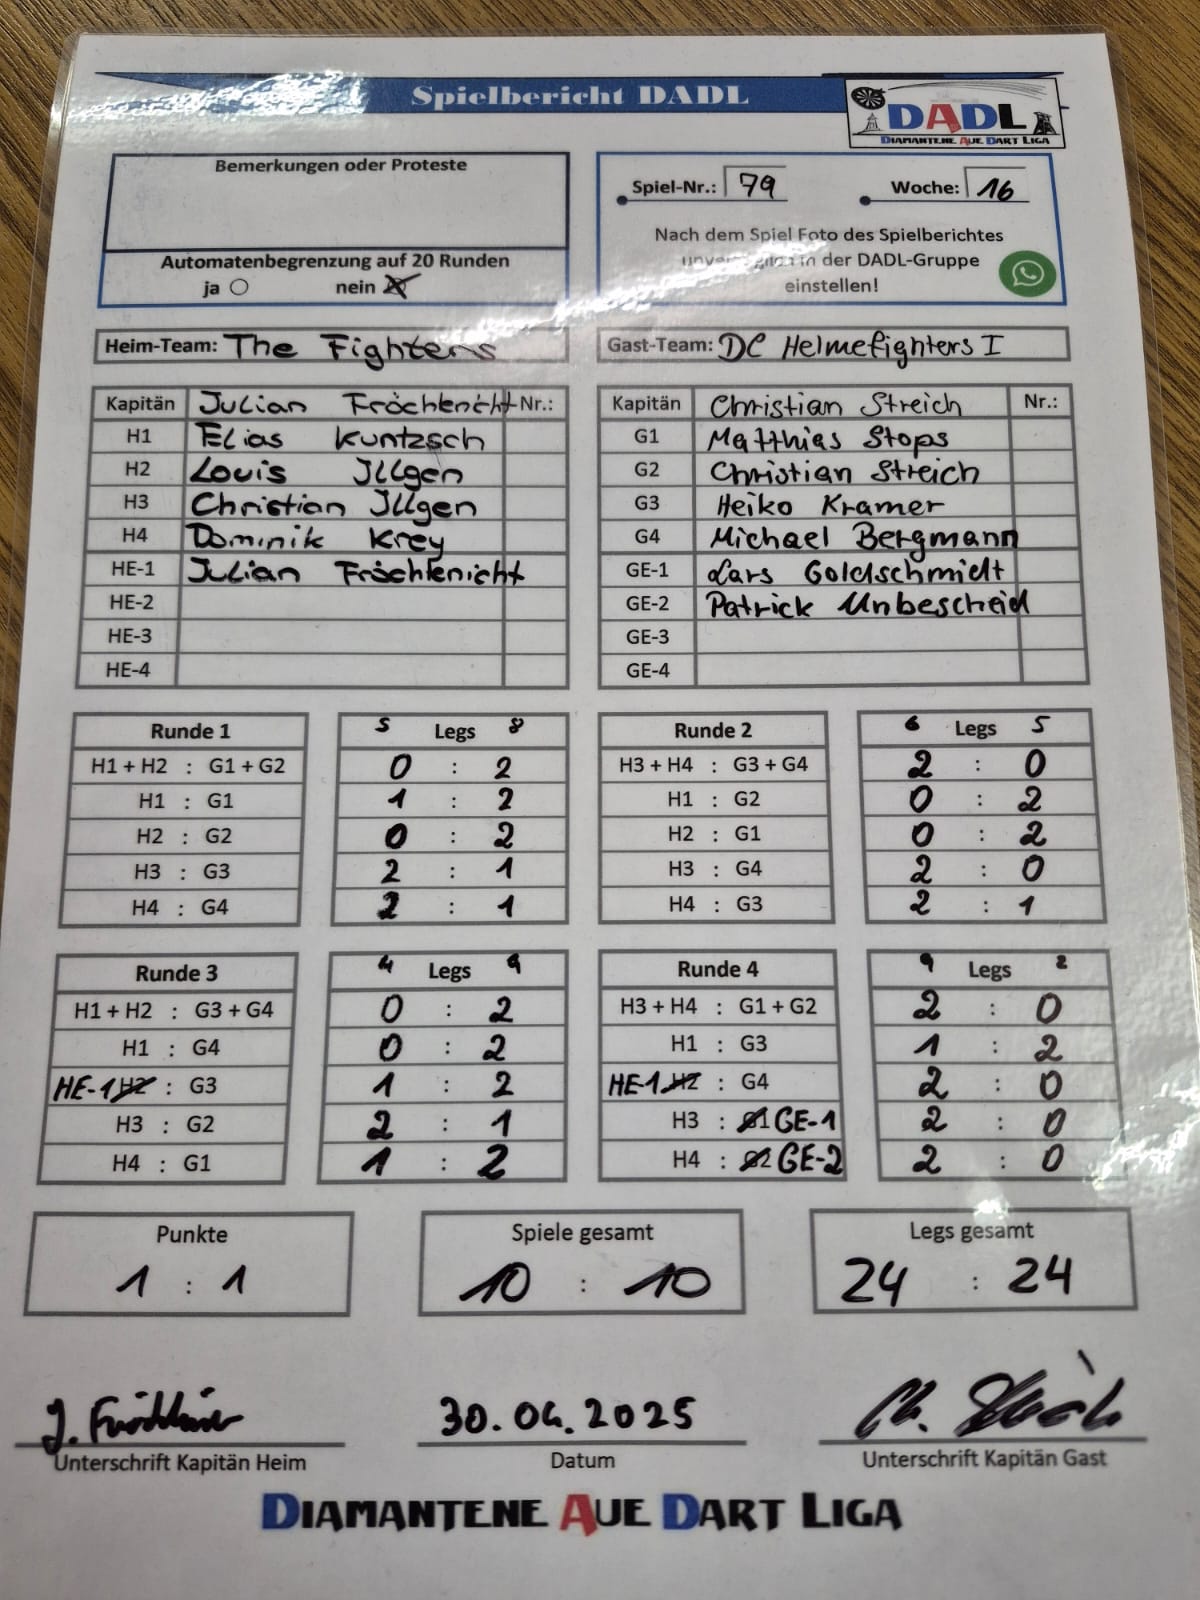 Spielbericht DADL
DADL
DIAMANTENE AUE DART LIGA
Bemerkungen oder Proteste
Automatenbegrenzung auf 20 Runden
ja nein
Spiel-Nr.: 79 Woche: 16
Nach dem Spiel Foto des Spielberichtes
in der DADL-Gruppe
einstellen!
Heim-Team: The Fighters
Kapitän Julian Fröchtenicht Nr.:
H1 Elias Kuntzsch
H2 Louis Illgen
H3 Christian Illgen
H4 Dominik Krey
HE-1 Julian Fröchtenicht
HE-2
HE-3
HE-4
Gast-Team: DC Helmefighters I
Kapitän Christian Streich Nr.:
G1 Matthias Stops
G2 Christian Streich
G3 Heiko Kramer
G4 Michael Bergmann
GE-1 Lars Goldschmidt
GE-2 Patrick Unbescheid
GE-3
GE-4
Runde 1 5 Legs 8
H1 + H2 : G1 + G2 0 : 2
H1 : G1 1 : 2
H2 : G2 0 : 2
H3 : G3 2 : 1
H4 : G4 2 : 1
Runde 2 6 Legs 5
H3 + H4 : G3 + G4 2 : 0
H1 : G2 0 : 2
H2 : G1 0 : 2
H3 : G4 2 : 0
H4 : G3 2 : 1
Runde 3 4 Legs 9
H1 + H2 : G3 + G4 0 : 2
H1 : G4 0 : 2
HE-1 H2 : G3 1 : 2
H3 : G2 2 : 1
H4 : G1 1 : 2
Runde 4 9 Legs 2
H3 + H4 : G1 + G2 2 : 0
H1 : G3 1 : 2
HE-1 H2 : G4 2 : 0
H3 : G1 GE-1 2 : 0
H4 : G2 GE-2 2 : 0
Punkte
1 : 1
Spiele gesamt
10 : 10
Legs gesamt
24 : 24
30.04.2025
Unterschrift Kapitän Heim
Datum
Unterschrift Kapitän Gast
DIAMANTENE AUE DART LIGA